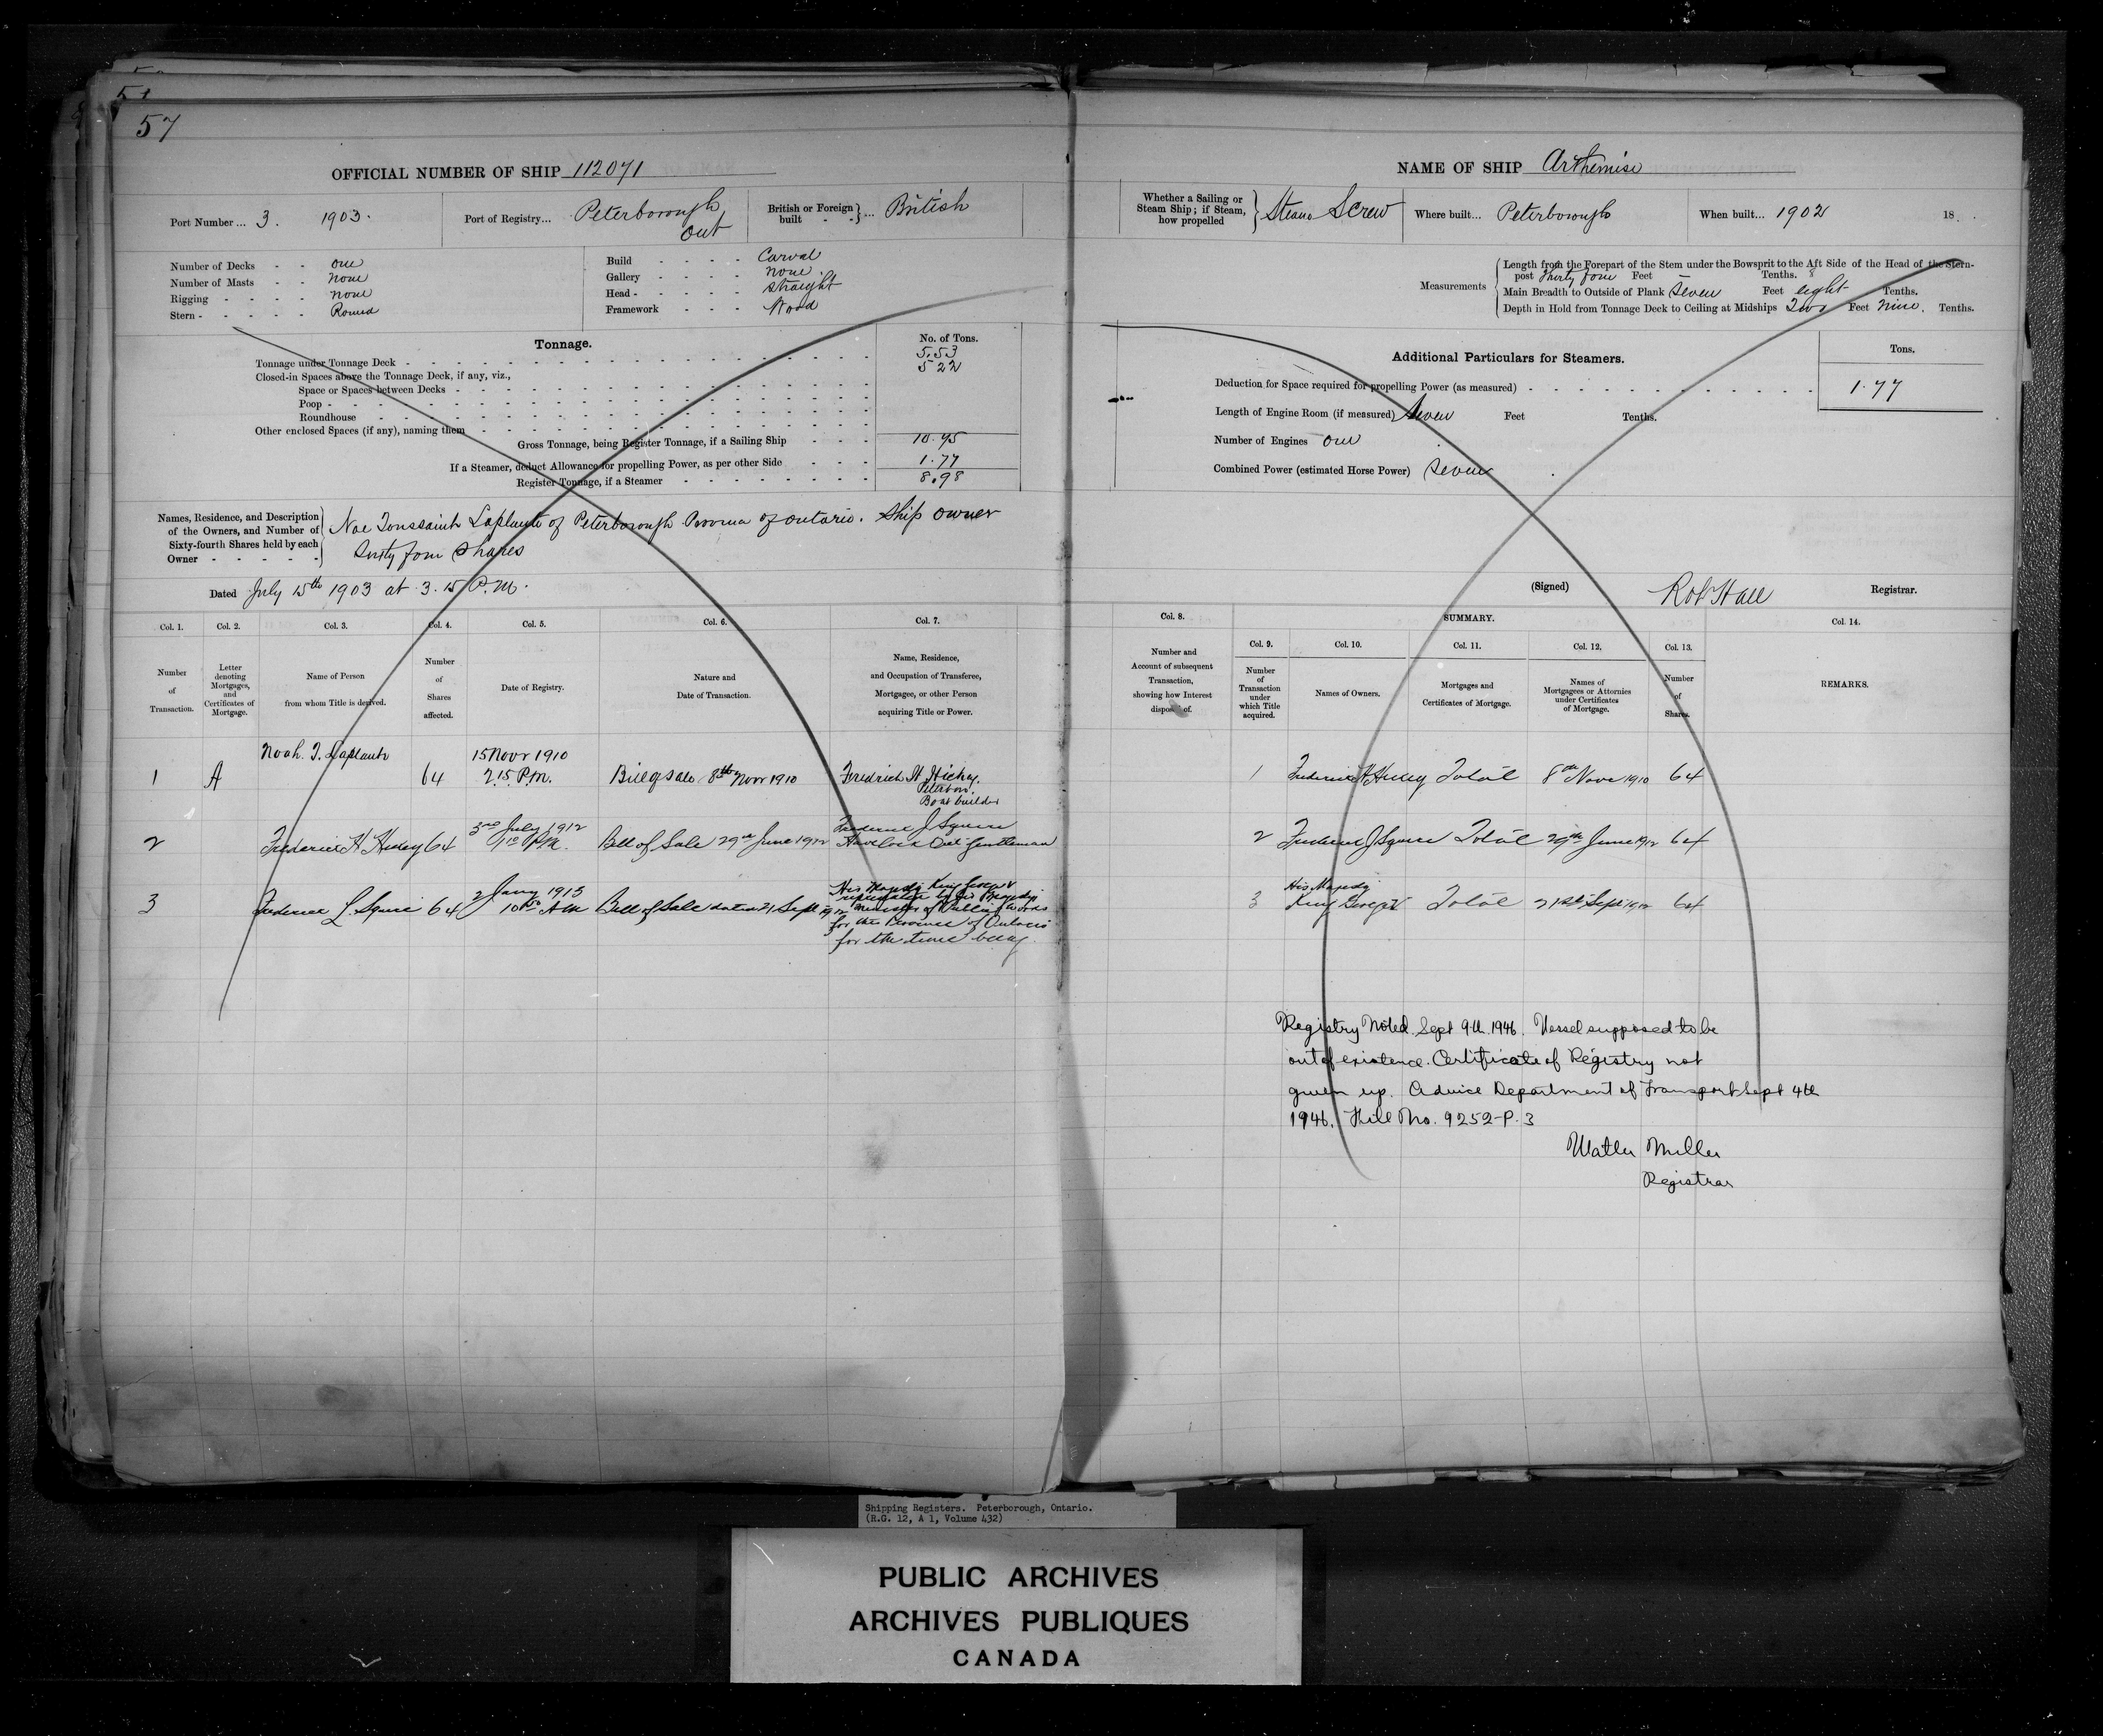 51
57
OFFICIAL NUMBER OF SHIP 112071
Port Number ... 3. 1903.
Port of Registry... Peterborough Ont
British or Foreign built - - } ... British
Number of Decks - - one
Number of Masts - - none
Rigging - - - - none
Stern - - - - - Round
Build - - - - Carval
Gallery - - - - none
Head - - - - - straight
Framework - - - Wood
Tonnage.
No. of Tons.
Tonnage under Tonnage Deck - - 5.53
Closed-in Spaces above the Tonnage Deck, if any, viz., 5 22
Space or Spaces between Decks
Poop
Roundhouse
Other enclosed Spaces (if any), naming them
Gross Tonnage, being Register Tonnage, if a Sailing Ship - - - 10.75
If a Steamer, deduct Allowance for propelling Power, as per other Side - - - 1.77
Register Tonnage, if a Steamer - - - 8.98
Names, Residence, and Description of the Owners, and Number of Sixty-fourth Shares held by each Owner - - - - -
Noe Toussaint Laplante of Peterborough Province of Ontario. Ship owner
Sixty four shares
Dated July 15th 1903 at 3.15 P.M.
Col. 1. Col. 2. Col. 3. Col. 4. Col. 5. Col. 6. Col. 7.
Number of Transaction.
Letter denoting Mortgages, and Certificates of Mortgage.
Name of Person from whom Title is derived.
Number of Shares affected.
Date of Registry.
Nature and Date of Transaction.
Name, Residence, and Occupation of Transferee, Mortgagee, or other Person acquiring Title or Power.
1 A Noah. T. Laplante 64 15 Novr 1910 2.15 P.M. Bill of sale 8th Novr 1910 Fredrich H. Hickey. Peterboro. Boat builder
2 Frederick H Hickey 64 3rd July 1912 P.M. Bill of Sale 29th June 1912 Frederick J Squire Havelock Ont gentleman
3 Frederick J. Squire 64 2 Jany 1913 10 50 AM Bill of Sale dated 21 Sept 1912 His Majesty King George V represented by His Majestys Minister of Public Works
for the Province of Ontario
for the time being
NAME OF SHIP Arthemise
Whether a Sailing or Steam Ship; if Steam, how propelled } Steam Screw
Where built... Peterborough
When built... 1902 18 .
Measurements
Length from the Forepart of the Stem under the Bowsprit to the Aft Side of the Head of the Stern-
post thirty four Feet Tenths. 8
Main Breadth to Outside of Plank Seven Feet eight Tenths.
Depth in Hold from Tonnage Deck to Ceiling at Midships Two Feet nine. Tenths.
Additional Particulars for Steamers.
Tons.
Deduction for Space required for propelling Power (as measured) - - 1.77
Length of Engine Room (if measured) Seven Feet Tenths.
Number of Engines one
Combined Power (estimated Horse Power) Seven
(Signed) Rob Hall Registrar.
Col. 8. SUMMARY. Col. 14.
Col. 9. Col. 10. Col. 11. Col. 12. Col. 13.
Number and Account of subsequent Transaction, showing how Interest disposed of.
Number of Transaction under which Title acquired.
Names of Owners.
Mortgages and Certificates of Mortgage.
Names of Mortgagees or Attornies under Certificates of Mortgage.
Number of Shares.
REMARKS.
1 Frederick H Hickey Total 8th Nov 1910 64
2 Frederick J Squire Total 29th June 1912 64
3 His Majesty King George V Total 21st Sept 1912 64
Registry Noted. Sept 9th 1946. Vessel supposed to be
out of existence. Certificate of Registry not
given up. Advice Department of Transport Sept 4th
1946. File No. 9252-P.3
Walter Miller
Registrar
Shipping Registers. Peterborough, Ontario.
(R.G. 12, A 1, Volume 432)
PUBLIC ARCHIVES
ARCHIVES PUBLIQUES
CANADA